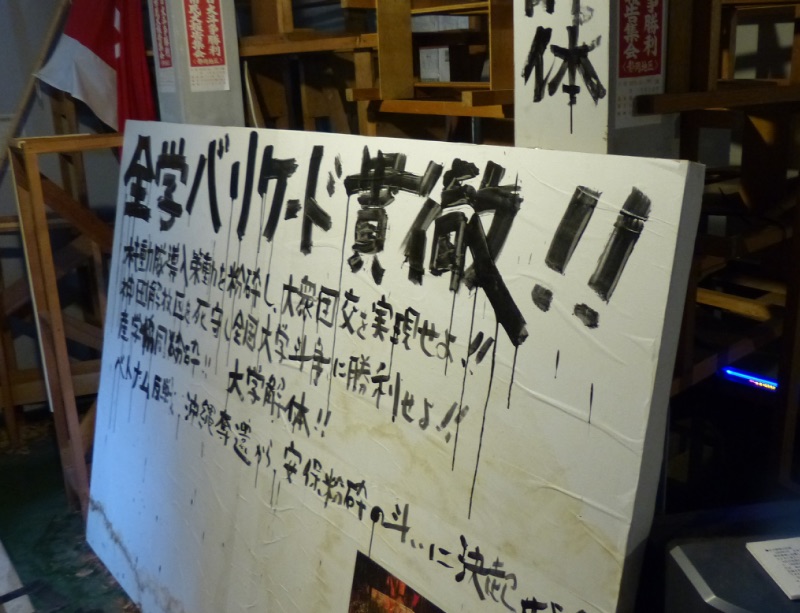 解体
争勝利
全学バリケード貫徹!!
機動隊導入策動を粉砕し、大衆団交を実現せよ!!
神田解放区を死守し全国大学斗争に勝利せよ!!
産学協同粉砕!! 大学解体!!
ベトナム反戦、沖縄奪還から、安保粉砕の斗いに決起